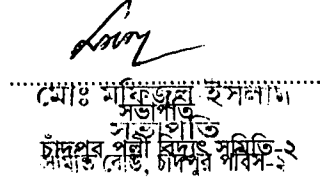 মোঃ মফিজুল ইসলাম
সভাপতি
সভাপতি
চাঁদপুর পল্লী বিদ্যুৎ সমিতি-২
বোর্ড, চাঁদপুর পবিস-২